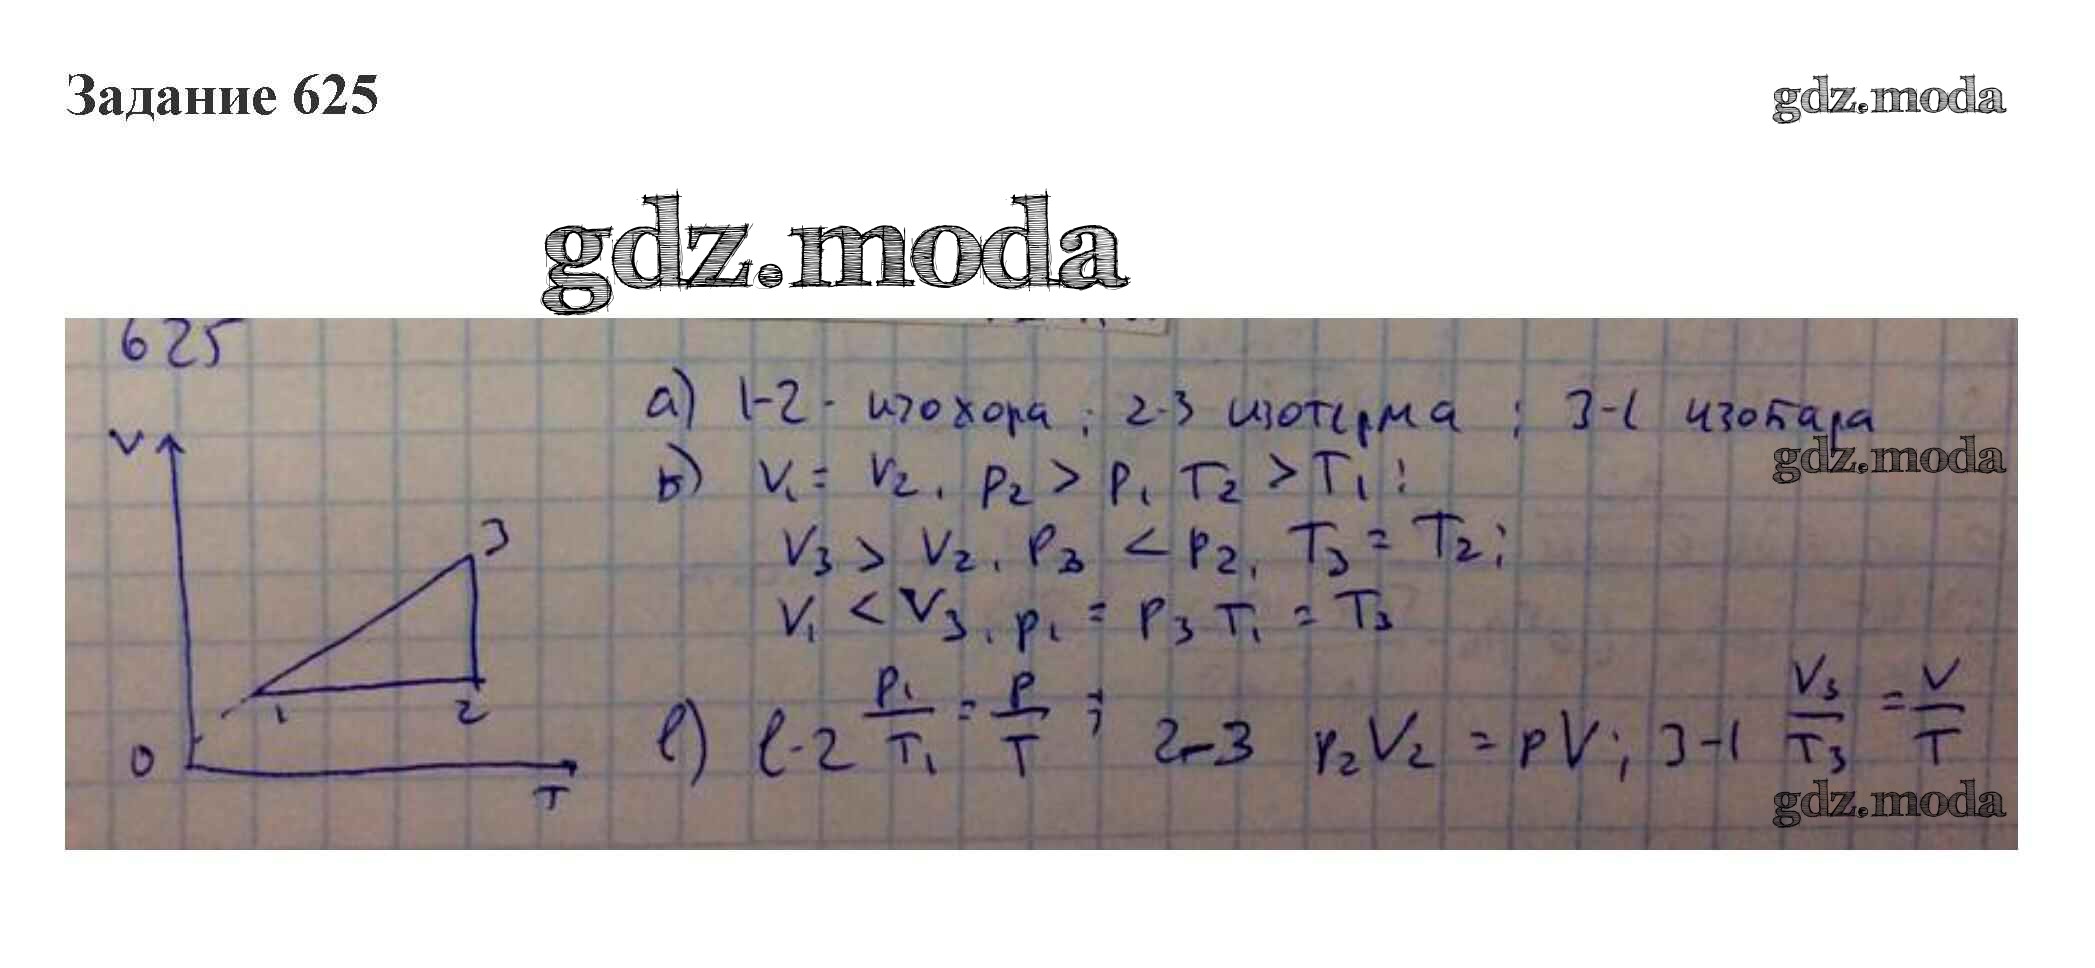 Задание 625
gdz.moda
gdz.moda
625
а) 1-2 - изохора ; 2-3 изотерма ; 3-1 изобара
gdz.moda
б) V₁ = V₂, p₂ > p₁ T₂ > T₁ ;
V₃ > V₂, p₃ < p₂, T₃ = T₂ ;
V₁ < V₃, p₁ = p₃ T₁ = T₃
в) 1-2 p₁/T₁ = p/T ; 2-3 p₂V₂ = pV ; 3-1 V₃/T₃ = V/T
gdz.moda
V
3
1
2
0
T